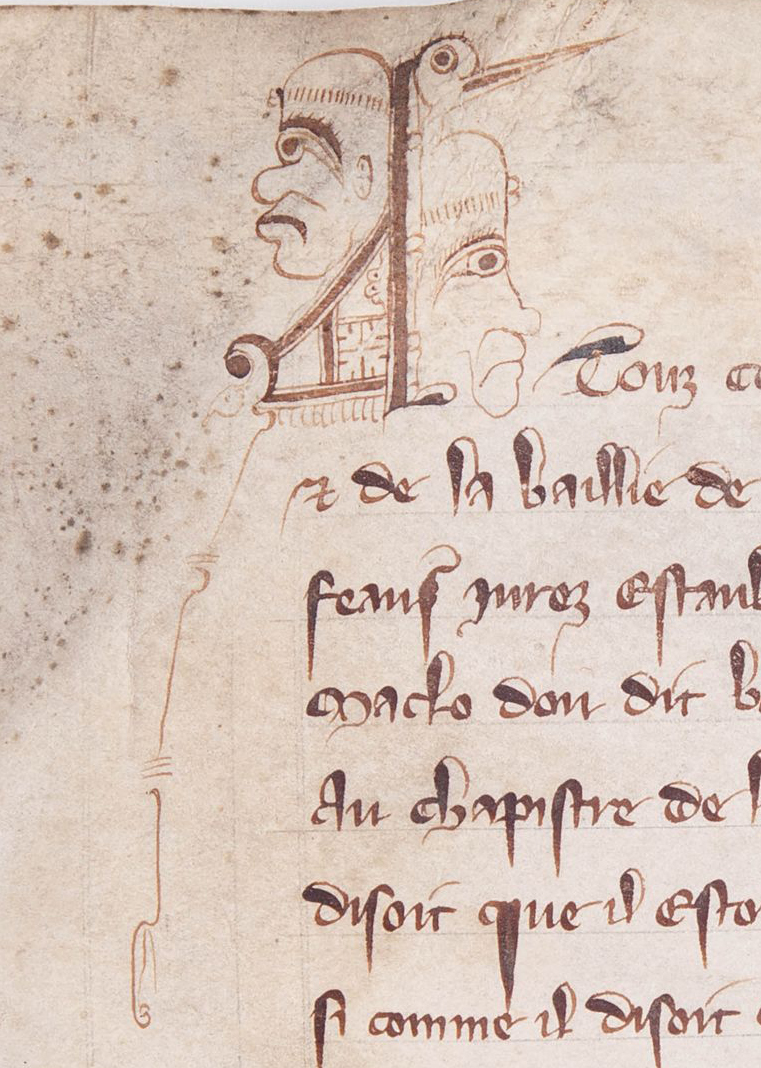 A Touz co
⁊ de la baillie de
feaus jurez Establ
Macko dou dit b
Au chapistre de l
disoit que il Esto
si comme il disoit